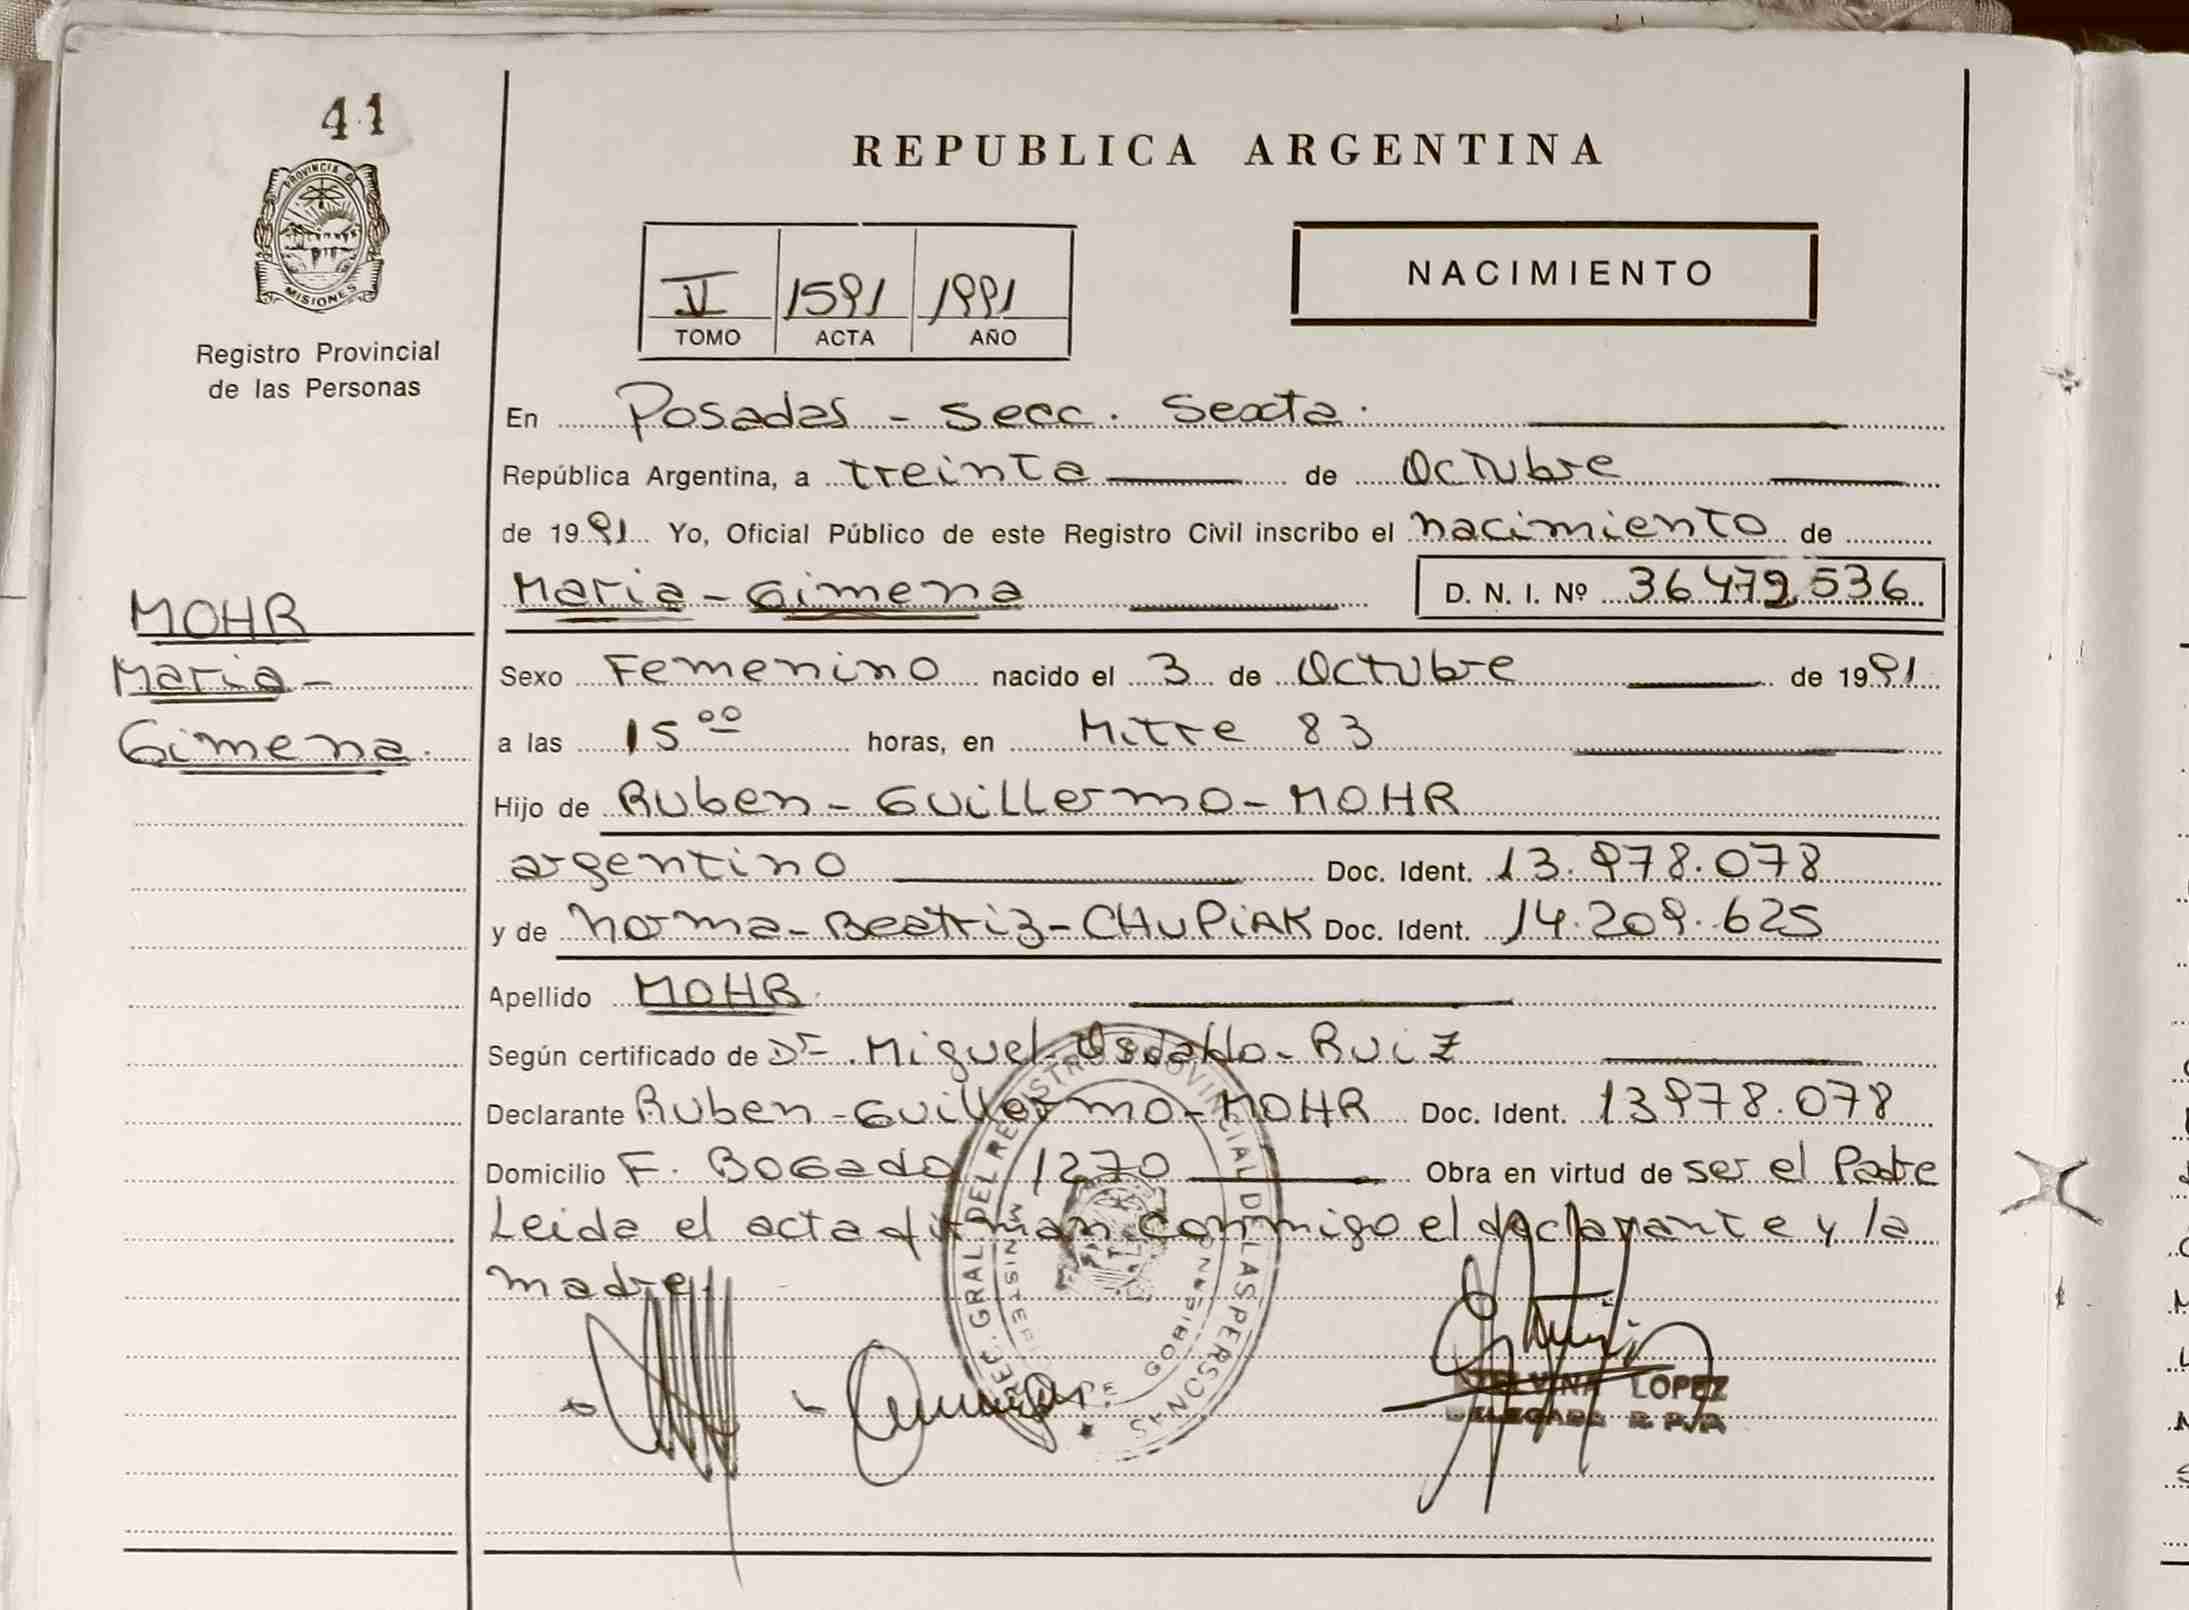 41
PROVINCIA DE
MISIONES
Registro Provincial
de las Personas
MOHR
Maria-
Gimena.
REPUBLICA ARGENTINA
V 1591 1991
TOMO ACTA AÑO
NACIMIENTO
En Posadas - Secc. Sexta.
República Argentina, a treinta de Octubre
de 1991 Yo, Oficial Público de este Registro Civil inscribo el nacimiento de
Maria-Gimena D. N. I. Nº 36479536
Sexo Femenino nacido el 3 de Octubre de 1991
a las 15 00 horas, en Mitre 83
Hijo de Ruben-Guillermo-MOHR
argentino Doc. Ident. 13.978.078
y de Norma-Beatriz-CHUPIAK Doc. Ident. 14.209.625
Apellido MOHR
Según certificado de Dr. Miguel Ruiz
Declarante Ruben-Guillermo-MOHR Doc. Ident. 13978.078
Domicilio F. BOGado 1270 Obra en virtud de ser el Padre
Leida el acta firman conmigo el declarante y la
madre.
DIREC. GRAL. DEL REGISTRO PROVINCIAL DE LAS PERSONAS
MINISTERIO DE GOBIERNO
LOPEZ
DELEGADA R.P.P.